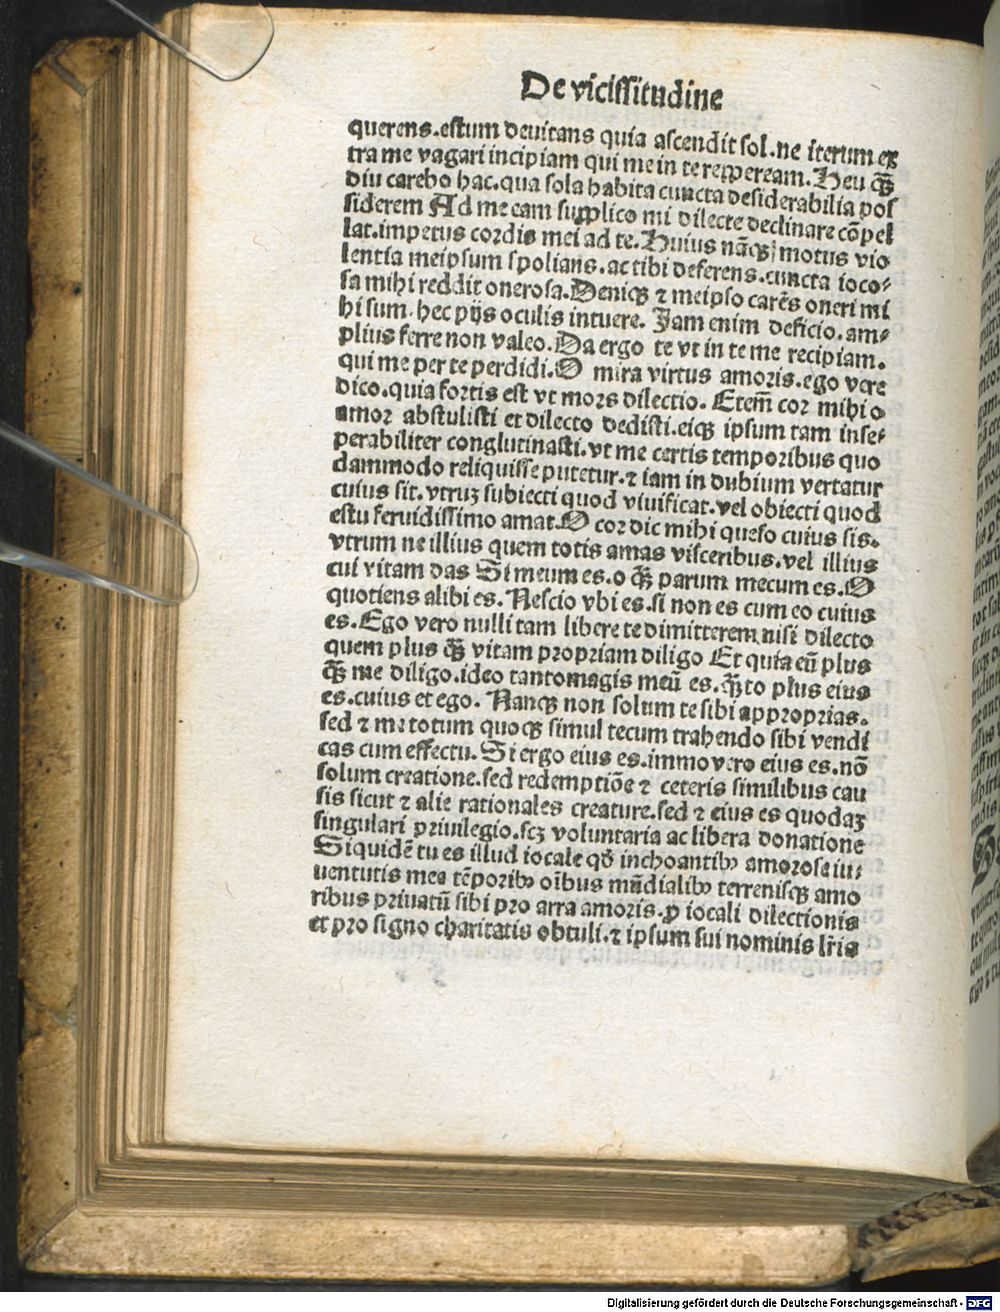 De vicissitudine
querens.estum deuitans quia ascendit sol.ne iterum ex
tra me vagari incipiam qui me in te reppeream. Heu qȝ̃
diu carebo hac.qua sola habita cuncta desiderabilia pos
siderem Ad me eam supplico mi dilecte declinare cōpel
lat.impetus cordis mei ad te. Huius nāqȝ motus vio
lentia meipsum spolians.ac tibi deferens.cuncta ioco⸗
sa mihi reddit onerosa. Deniqȝ ⁊ meipso carēs oneri mi
hi sum. hec pijs oculis intuere. Jam enim deficio.am⸗
plius ferre non valeo. Da ergo te vt in te me recipiam.
qui me per te perdidi. O mira virtus amoris.ego vere
dico.quia fortis est vt mors dilectio. Etem̄ cor mihi o
amor abstulisti et dilecto dedisti.eiqȝ ipsum tam inse⸗
perabiliter conglutinasti.vt me certis temporibus quo
dammodo reliquisse putetur.⁊ iam in dubium vertatur
cuius sit.vtruȝ subiecti quod viuificat.vel obiecti quod
estu feruidissimo amat. O cor dic mihi queso cuius sis.
vtrum ne illius quem totis amas visceribus.vel illius
cui vitam das Si meum es.o qȝ̃ parum mecum es. O
quotiens alibi es. Nescio vbi es.si non es cum eo cuius
es. Ego vero nulli tam libere te dimitterem nisi dilecto
quem plus qȝ̃ vitam propriam diligo Et quia eū plus
qȝ̃ me diligo.ideo tantomagis meū es.qȝ̃to plus eius
es.cuius et ego. Nanqȝ non solum te sibi approprias.
sed ⁊ me totum quoqȝ simul tecum trahendo sibi vendi
cas cum effectu. Si ergo eius es.immo vero eius es.nō
solum creatione.sed redemptiōe ⁊ ceteris similibus cau
sis sicut ⁊ alie rationales creature.sed ⁊ eius es quodaȝ
singulari priuilegio.scȝ voluntaria ac libera donatione
Siquidē tu es illud iocale qđ inchoantibꝰ amorose iu⸗
uentutis mee tēporibꝰ oībus mūdialibꝰ terrenisqȝ amo
ribus priuatū sibi pro arra amoris.ꝓ iocali dilectionis
et pro signo charitatis obtuli.⁊ ipsum sui nominis lr̄is
Digitalisierung gefördert durch die Deutsche Forschungsgemeinschaft - DFG